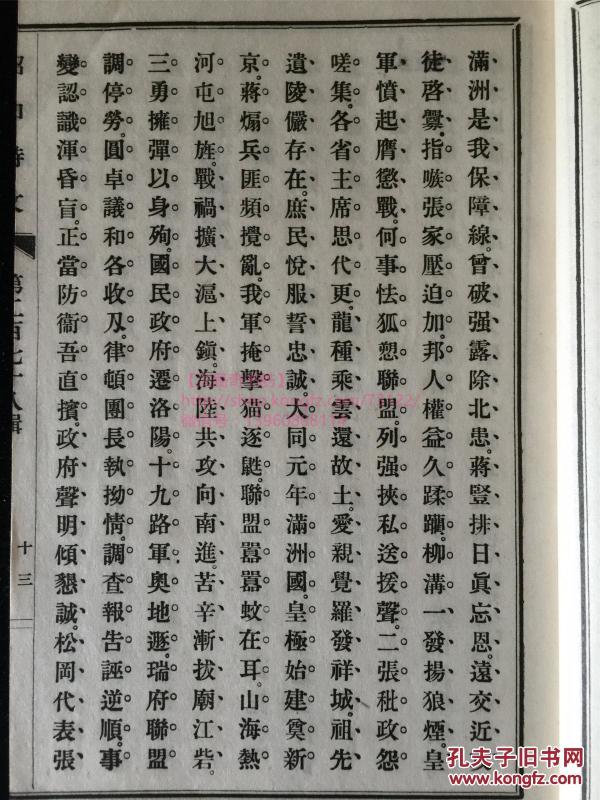 滿洲是我保障線。曾破强露除北患。蔣豎排日眞忘恩。遠交近攻
徒啓釁。指嗾張家壓迫加。邦人權益久蹂躪。柳溝一發揚狼煙。皇
軍憤起膺懲戰。何事怯狐愬聯盟。列强挾私送援聲。二張秕政怨
嗟集。各省主席思代更。龍種乘雲還故土。愛親覺羅發祥城。祖先
遺陵儼存在。庶民悅服誓忠誠。大同元年滿洲國。皇極始建奠新
京。蔣煽兵匪頻攪亂。我軍掩擊猫逐鼪。聯盟囂囂蚊在耳。山海熱
河屯旭旌。戰禍擴大滬上鎭。海陸共攻向南進。苦辛漸拔廟江砦。
三勇擁彈以身殉。國民政府遷洛陽。十九路軍奥地遯。瑞府聯盟
調停勞。圓卓議和各收刄。律頓團長執拗情。調查報告誣逆順。事
變認識渾昏盲。正當防衞吾直擯。政府聲明傾懇誠。松岡代表張
昭和詩文 第二百七十八輯 十三
孔夫子旧书网
www.kongfz.com